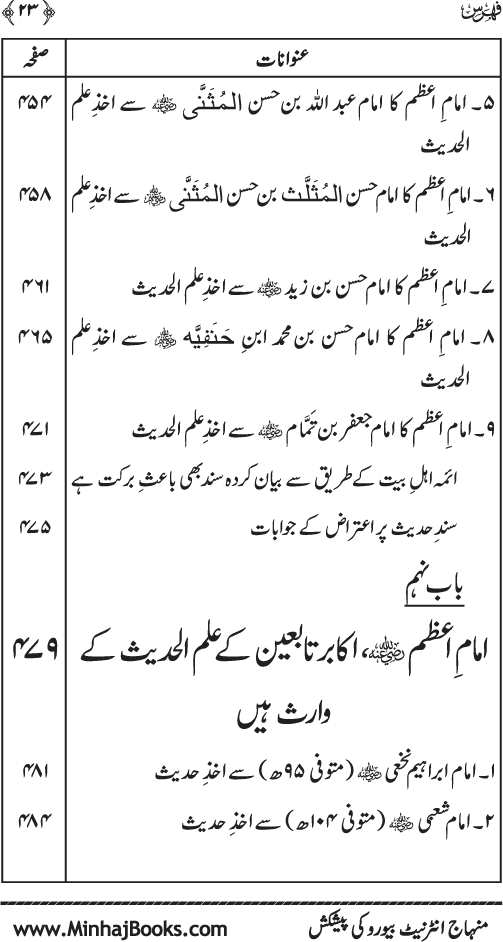 فہرس ﴿۲۳﴾
عنوانات صفحہ
۵۔ امامِ اعظم کا امام عبد اللہ بن حسن المُثَنَّی رضی اللہ عنہ سے اخذِ علم ۴۵۴
الحدیث
۶۔ امامِ اعظم کا امام حسن المُثَلَّث بن حسن المُثَنَّی رضی اللہ عنہ سے اخذِ علم ۴۵۸
الحدیث
۷۔ امامِ اعظم کا امام حسن بن زید رضی اللہ عنہ سے اخذِ علم الحدیث ۴۶۱
۸۔ امامِ اعظم کا امام حسن بن محمد ابنِ حَنَفِیَّہ رضی اللہ عنہ سے اخذِ علم ۴۶۵
الحدیث
۹۔ امامِ اعظم کا امام جعفر بن تَمَّام رضی اللہ عنہ سے اخذِ علم الحدیث ۴۷۱
ائمہ اہلِ بیت کے طریق سے بیان کردہ سند بھی باعثِ برکت ہے ۴۷۳
سندِ حدیث پر اعتراض کے جوابات ۴۷۵
باب نہم
امامِ اعظم رضی اللہ عنہ، اکابر تابعین کے علم الحدیث کے ۴۷۹
وارث ہیں
۱۔ امام ابراہیم نخعی رضی اللہ عنہ (متوفی ۹۵ھ) سے اخذِ حدیث ۴۸۱
۲۔ امام شعبی رضی اللہ عنہ (متوفی ۱۰۴ھ) سے اخذِ حدیث ۴۸۴
منہاج انٹرنیٹ بیورو کی پیشکش www.MinhajBooks.com